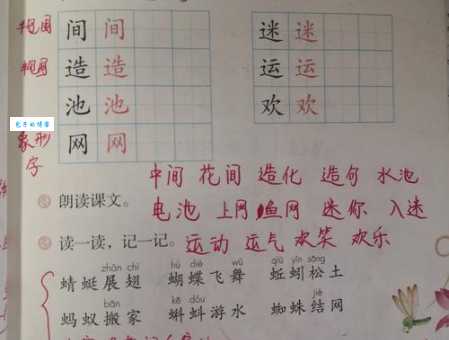 半包围 间 间 迷 迷
半包围 造 造 运 运
池 池 欢 欢
象形字 网 网
中间 花间 造化 造句 水池
朗读课文。 电池 上网 鱼网 迷你 入迷
读一读，记一记。 运动 运气 欢笑 欢乐
zhǎn chì hú dié wǔ qiū yǐn sōng
蜻蜓展翅 蝴蝶飞舞 蚯蚓松土
bān kē dǒu jié
蚂蚁搬家 蝌蚪游水 蜘蛛结网